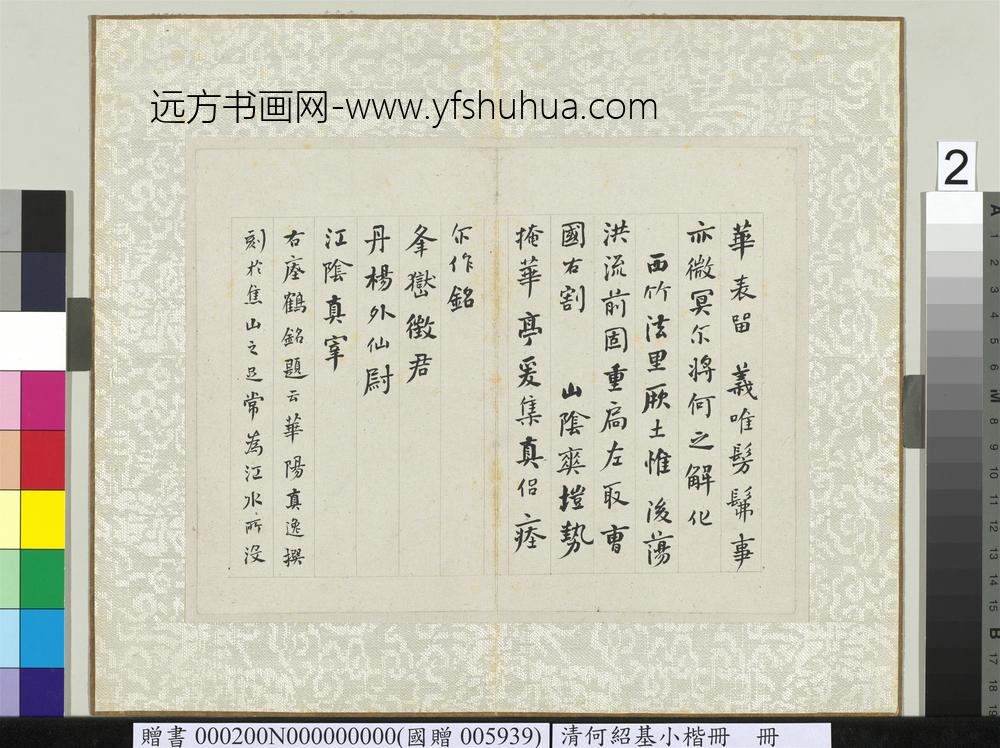 远方书画网-www.yfshuhua.com
華表留 義唯髣髴事
亦微冥尓將何之解化
西竹法里厥土惟 後蕩
洪流前固重扃左取曹
國右割 山陰爽塏勢
掩華亭爰集真侶瘞
尒作銘
夆嶽徵君
丹楊外仙尉
江陰真宰
右瘞鶴銘題云華陽真逸撰
刻於焦山之足常為江水所没
2
贈書 000200N000000000(國贈 005939)
清何紹基小楷冊 冊
A 1 2 3 4 5 6 M 8 9 10 11 12 13 14 15 B 17 18 19